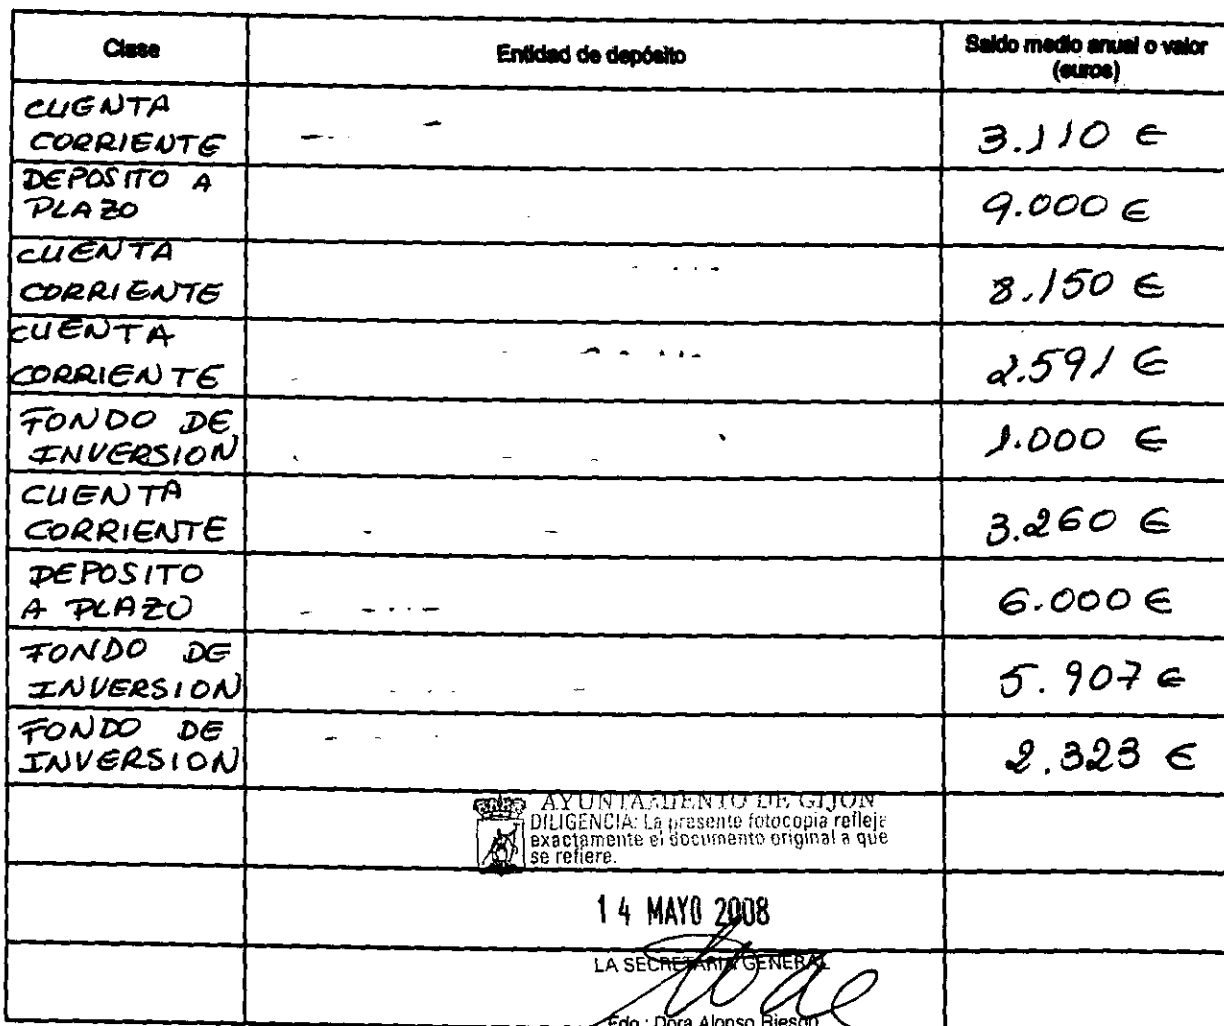 Clase Entidad de depósito Saldo medio anual o valor
(euros)
CUENTA
CORRIENTE 3.110 €
DEPOSITO A
PLAZO 9.000 €
CUENTA
CORRIENTE 8.150 €
CUENTA
CORRIENTE 2.591 €
FONDO DE
INVERSION 1.000 €
CUENTA
CORRIENTE 3.260 €
DEPOSITO
A PLAZO 6.000 €
FONDO DE
INVERSION 5.907 €
FONDO DE
INVERSION 2.323 €
AYUNTAMIENTO DE GIJON
DILIGENCIA: La presente fotocopia refleja
exactamente el documento original a que
se refiere.
14 MAYO 2008
LA SECRETARIA GENERAL
Fdo.: Dora Alonso Riesgo